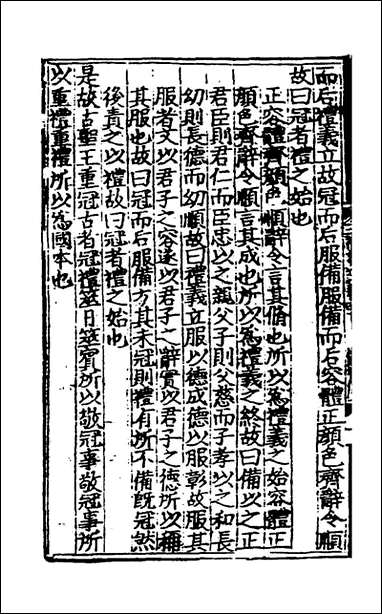 而后禮義立故冠而后服備服備而后容體正顔色齊辭令順
故曰冠者禮之始也
正容體齊顔色順辭令言其脩也所以爲禮義之始容體正
顔色齊辭令順言其成也所以爲禮義之終故曰備以之正
君臣則君仁而臣忠以之親父子則父慈而子孝以之和長
幼則長德而幼順故曰禮義立服以德成德以服彰故服其
服者文以君子之容遂以君子之辭實以君子之德所以稱
其服也故曰冠而后服備方其未冠則禮有所不備旣冠然
後責之以禮故曰冠者禮之始也
是故古聖王重冠古者冠禮筮日筮賓所以敬冠事敬冠事所
以重禮重禮所以爲國本也